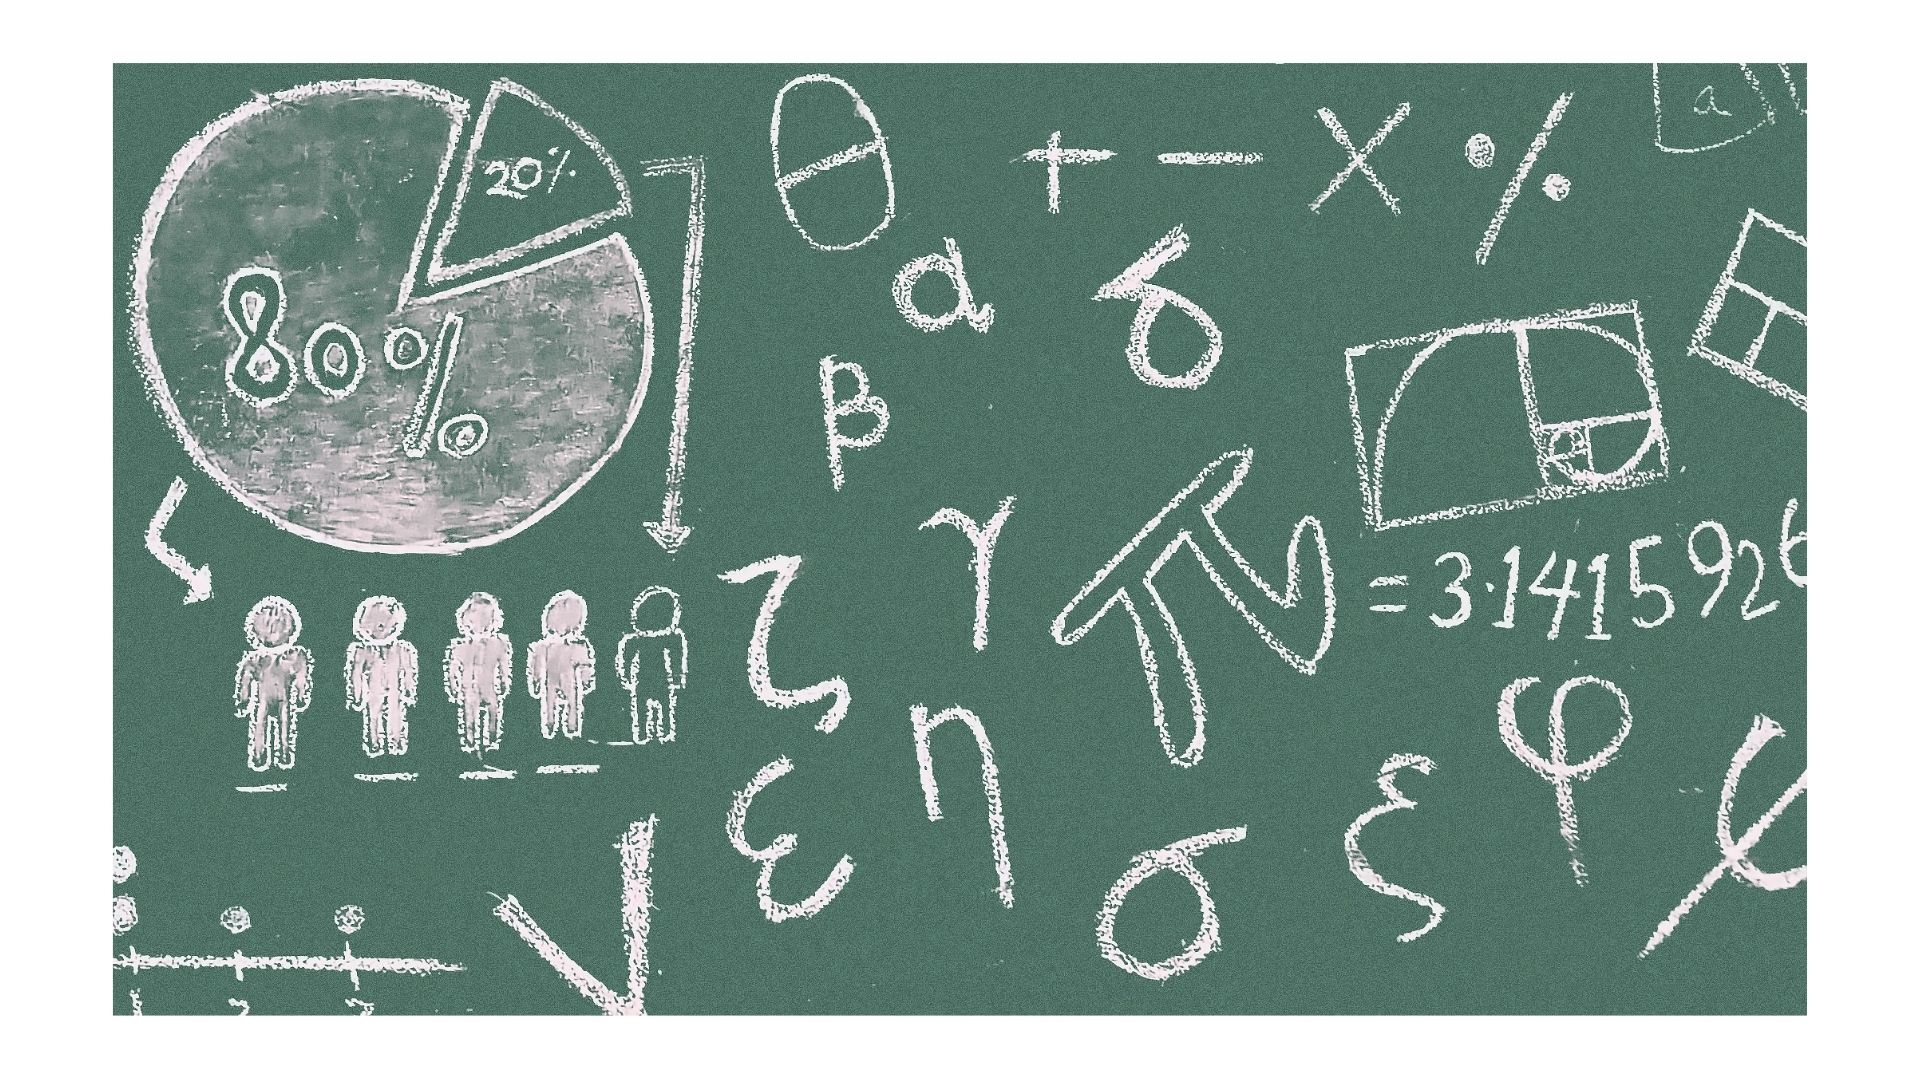 20%
80%
θ + − × %
a
α δ
β
γ
π = 3·1415926
ζ
η
ε
σ
ξ
φ
ψ